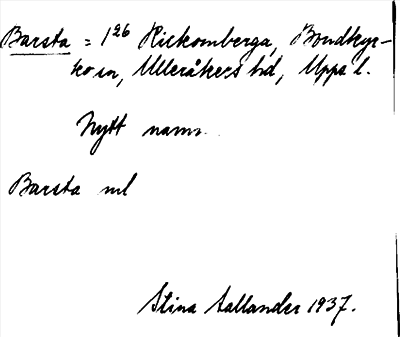 Barsta = 1²⁶ Kickomberga, Bondkyr-
ko sn, Ulleråkers hd, Upps l.
Nytt namn.
Barsta ml
Stina Sallander 1937.